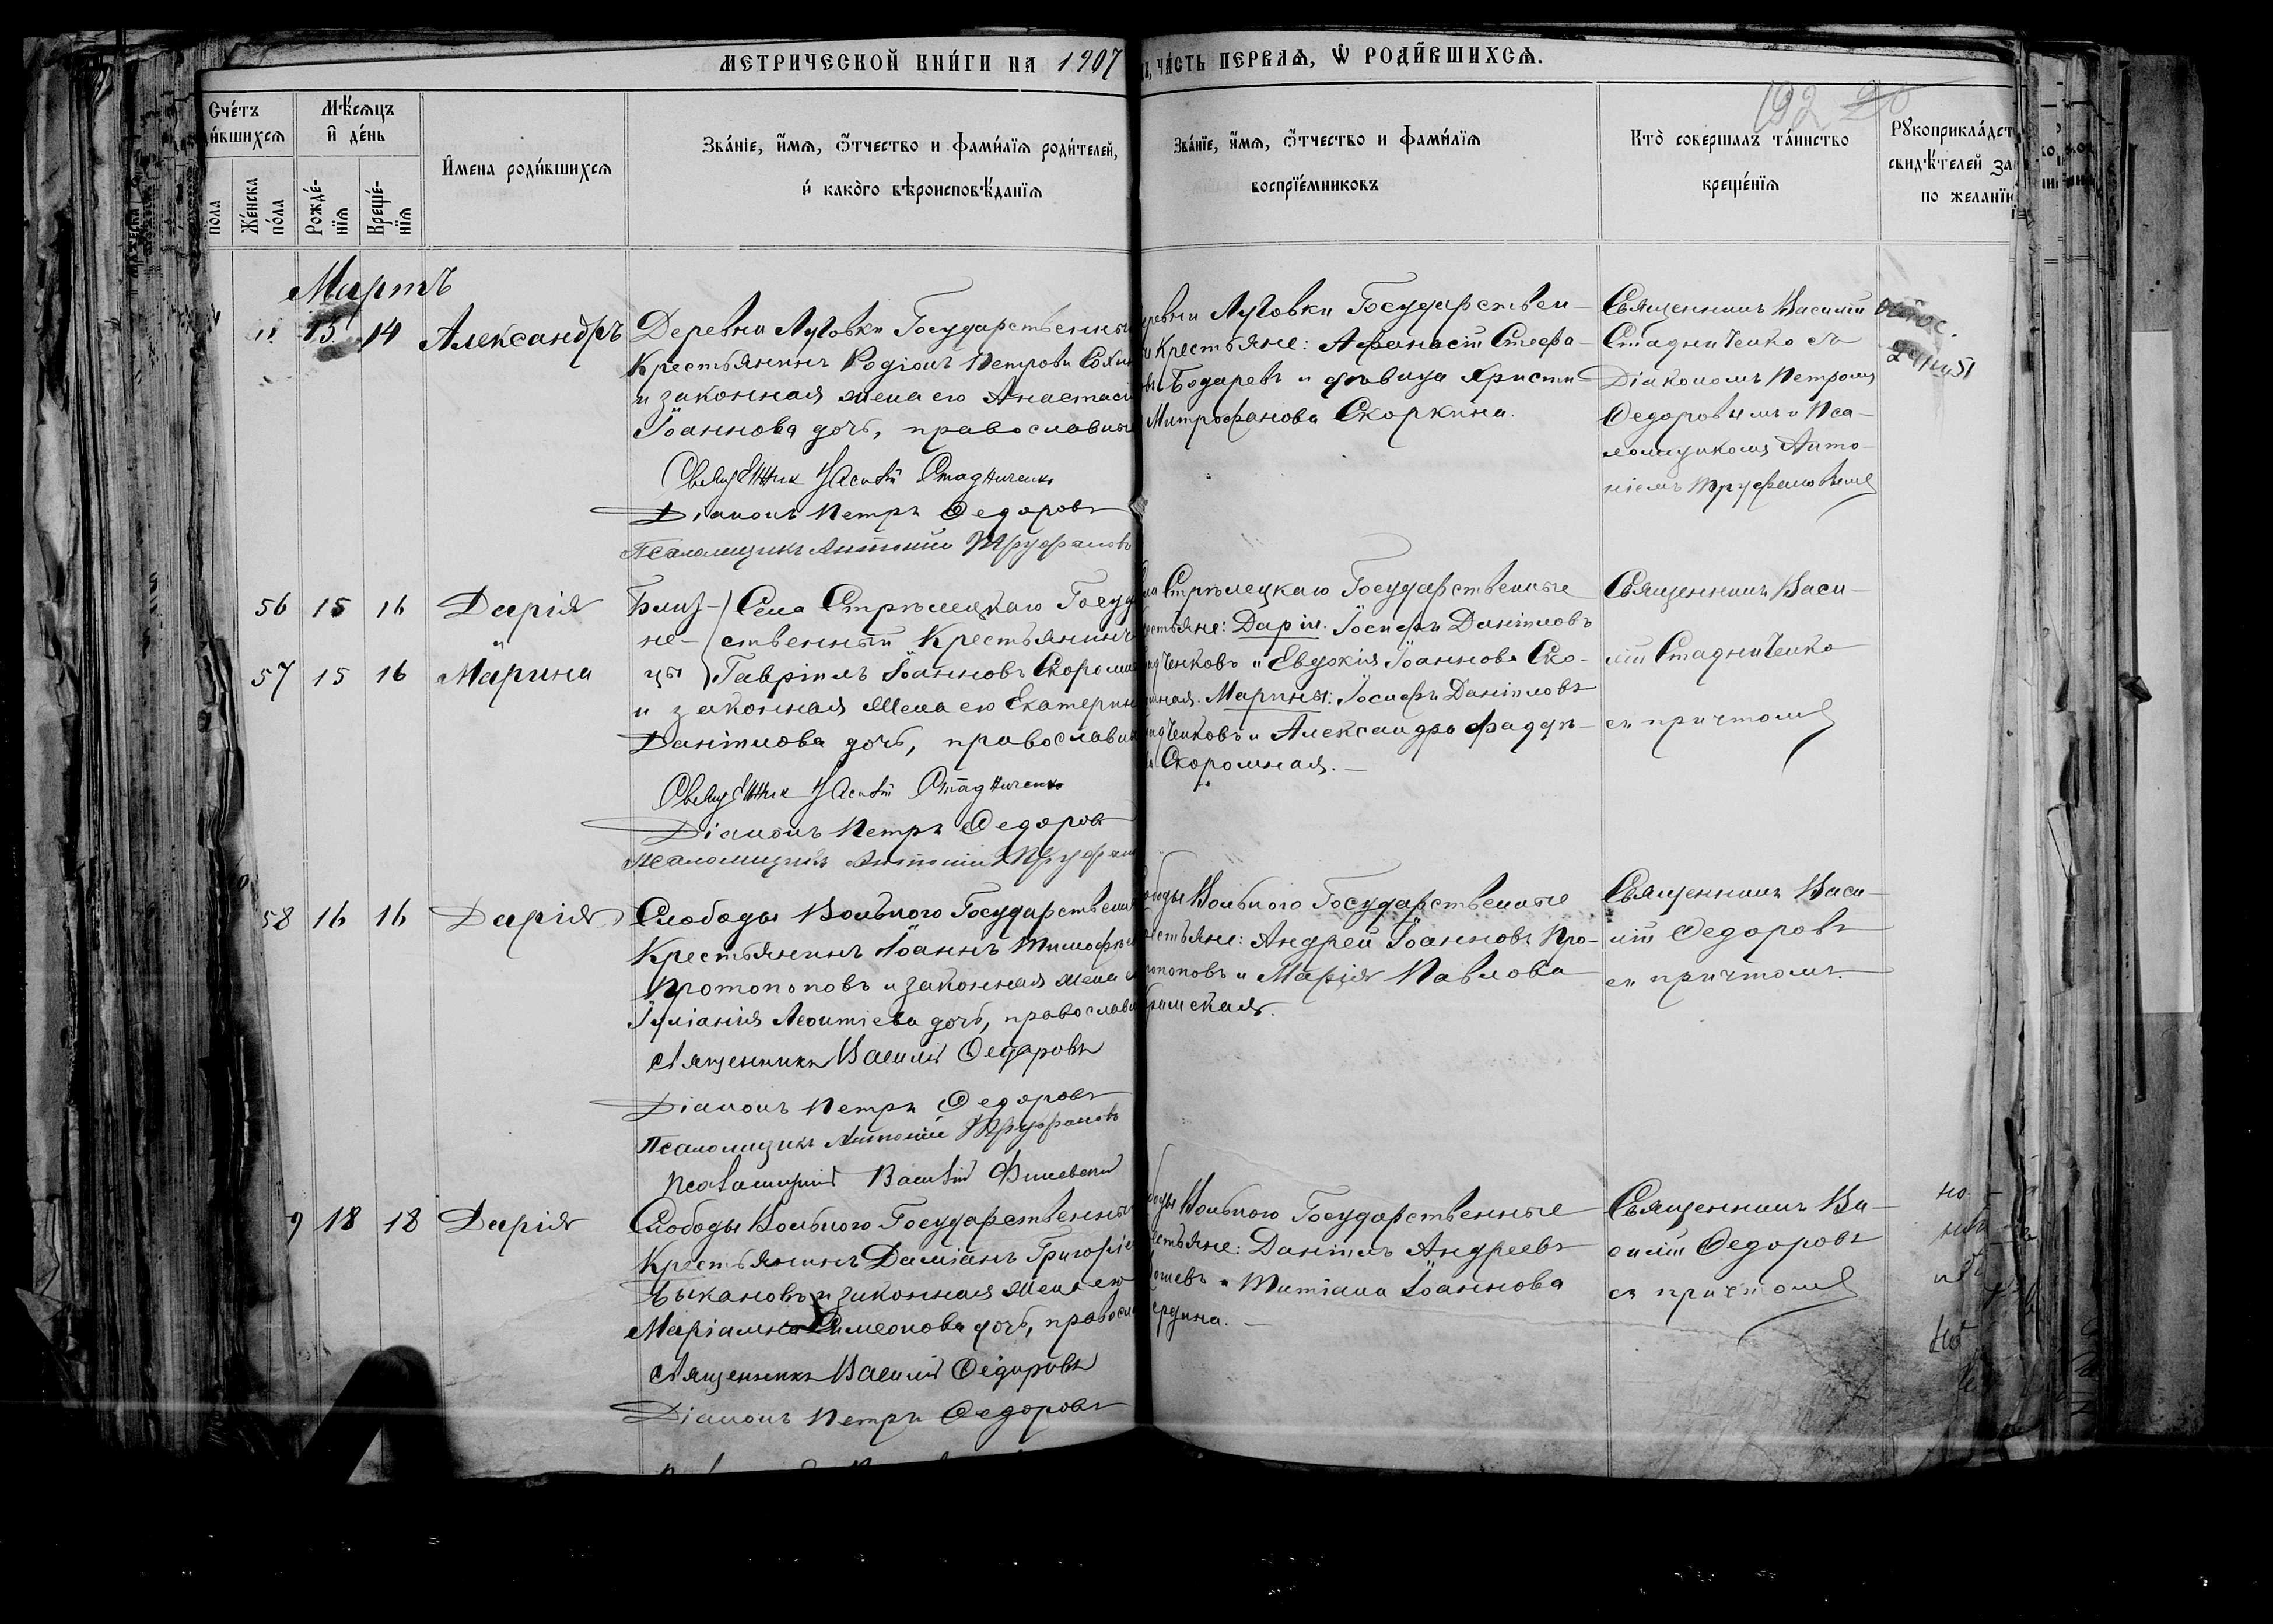 МЕТРИЧЕСКОЙ КНИ́ГИ НА 1907
ЧА́СТЬ ПЕРВАѦ, Ѡ РОДИ́ВШИХСѦ.
192
Сче́тъ
и́вшихсѧ
по́ла
Же́нска
по́ла
Мѣ́сѧцъ
и҆ де́нь
Рожде́-
нїѧ
Креще́-
нїѧ
И҆мена роди́вшихсѧ
Зва́нїе, и҆́мѧ, ѻ҆́тчество и фами́лїѧ роди́телей,
и҆ како́го вѣроисповѣ́данїѧ
Зва́нїе, и҆́мѧ, ѻ҆́тчество и фами́лїѧ
воспрїе́мниковъ
Кто̀ соверша́лъ та́инство
креще́нїѧ
Рꙋкоприкла́дст
свидѣ́телей за
по жела́нїю
Мартъ
15 14 Александръ
Деревни Луговки Государственны
Крестьянинъ Родіонъ Петровъ
и законная жена его Анастасі
Іоаннова дочь, православны
Священник Василій Стадниченко
Діаконъ Петръ Федоровъ
Псаломщикъ Антоній Труфановъ
ревни Луговки Государствен-
Крестьяне: Афанасій Стефа-
въ Бодаревъ и дѣвица Христи
Митрофанова Скоркина.
Священникъ Василій
Стадниченко съ
Діакономъ Петромъ
Федоровымъ и Пса-
ломщикомъ Анто-
ніемъ Труфановымъ
56 15 16 Дарія
и
57 15 16 Марина
Близ-
не-
цы
Села Стрѣлецкаго Госуд
ственный Крестьянинъ
Гавріилъ Іоанновъ Скором
и законная жена его Екатерин
Даніилова дочь, православн
Священник Василій Стадниченко
Діаконъ Петръ Федоровъ
Псаломщикъ Антоній Труфан
Стрѣлецкаго Государственные
стьяне: Даріи. Іосифъ Даніиловъ
ченковъ и Евдокія Іоаннова Ско-
мная. Марины: Іосифъ Даніиловъ
ченковъ и Александра Фаддѣ-
Скоромная.
Священникъ Васи-
лій Стадниченко
съ причтомъ
58 16 16 Дарія
Слободы Вольного Государствен
Крестьянинъ Іоаннъ Тимофѣе
Протопоповъ и законная жена
Іуліанія Леонтіева дочь, православн
священникъ Василій Федоровъ
Діаконъ Петръ Федоровъ
Псаломщикъ Антоній Труфановъ
Псаломщикъ Василій
ободы Вольного Государственные
естьяне: Андрей Іоанновъ Про-
топоповъ и Марія Павлова
Священникъ Васи-
лій Федоровъ
съ причтомъ.
9 18 18 Дарія
Слободы Вольного Государственны
Крестьянинъ Даміанъ Григорie
Быкановъ и законная жена его
Маріамна Симеонова дочь, правосл
священникъ Василій Федоровъ
Діаконъ Петръ Федоровъ
боды Вольного Государственные
стьяне: Даніилъ Андреевъ
и Татіана Іоаннова
Священникъ Ва-
силій Федоровъ
съ причтомъ